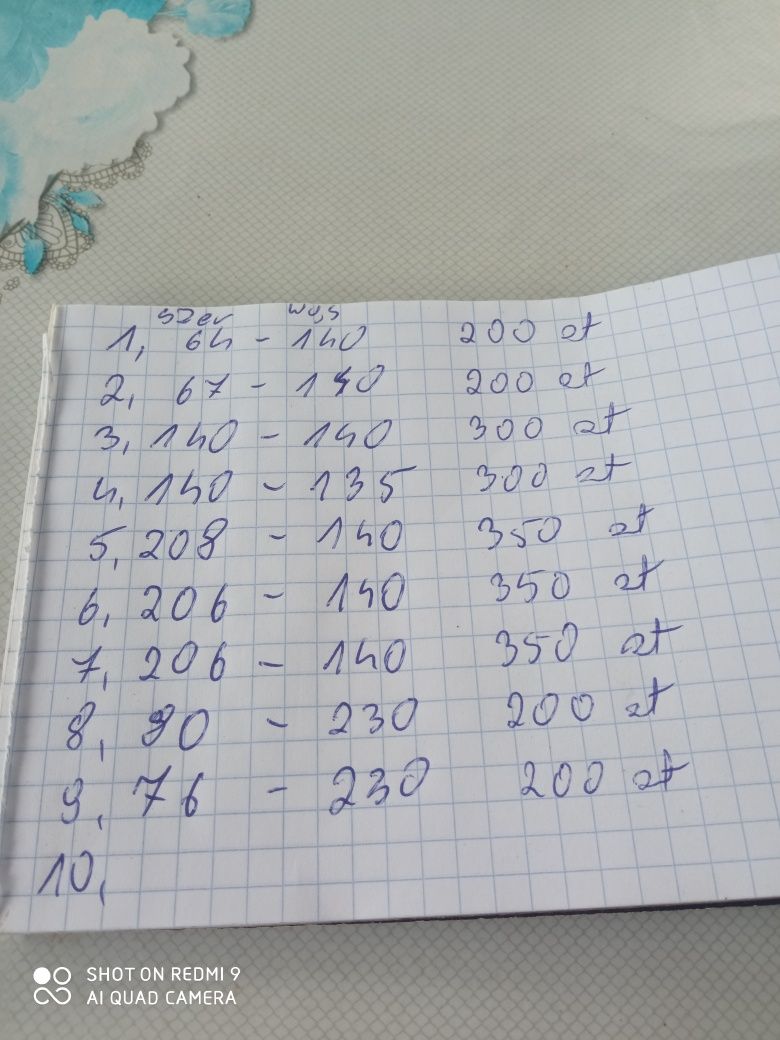 szer wys
1, 64 - 140 200 zł
2, 67 - 140 200 zł
3, 140 - 140 300 zł
4, 140 - 135 300 zł
5, 208 - 140 350 zł
6, 206 - 140 350 zł
7, 206 - 140 350 zł
8, 90 - 230 200 zł
9, 76 - 230 200 zł
10,
SHOT ON REDMI 9
AI QUAD CAMERA